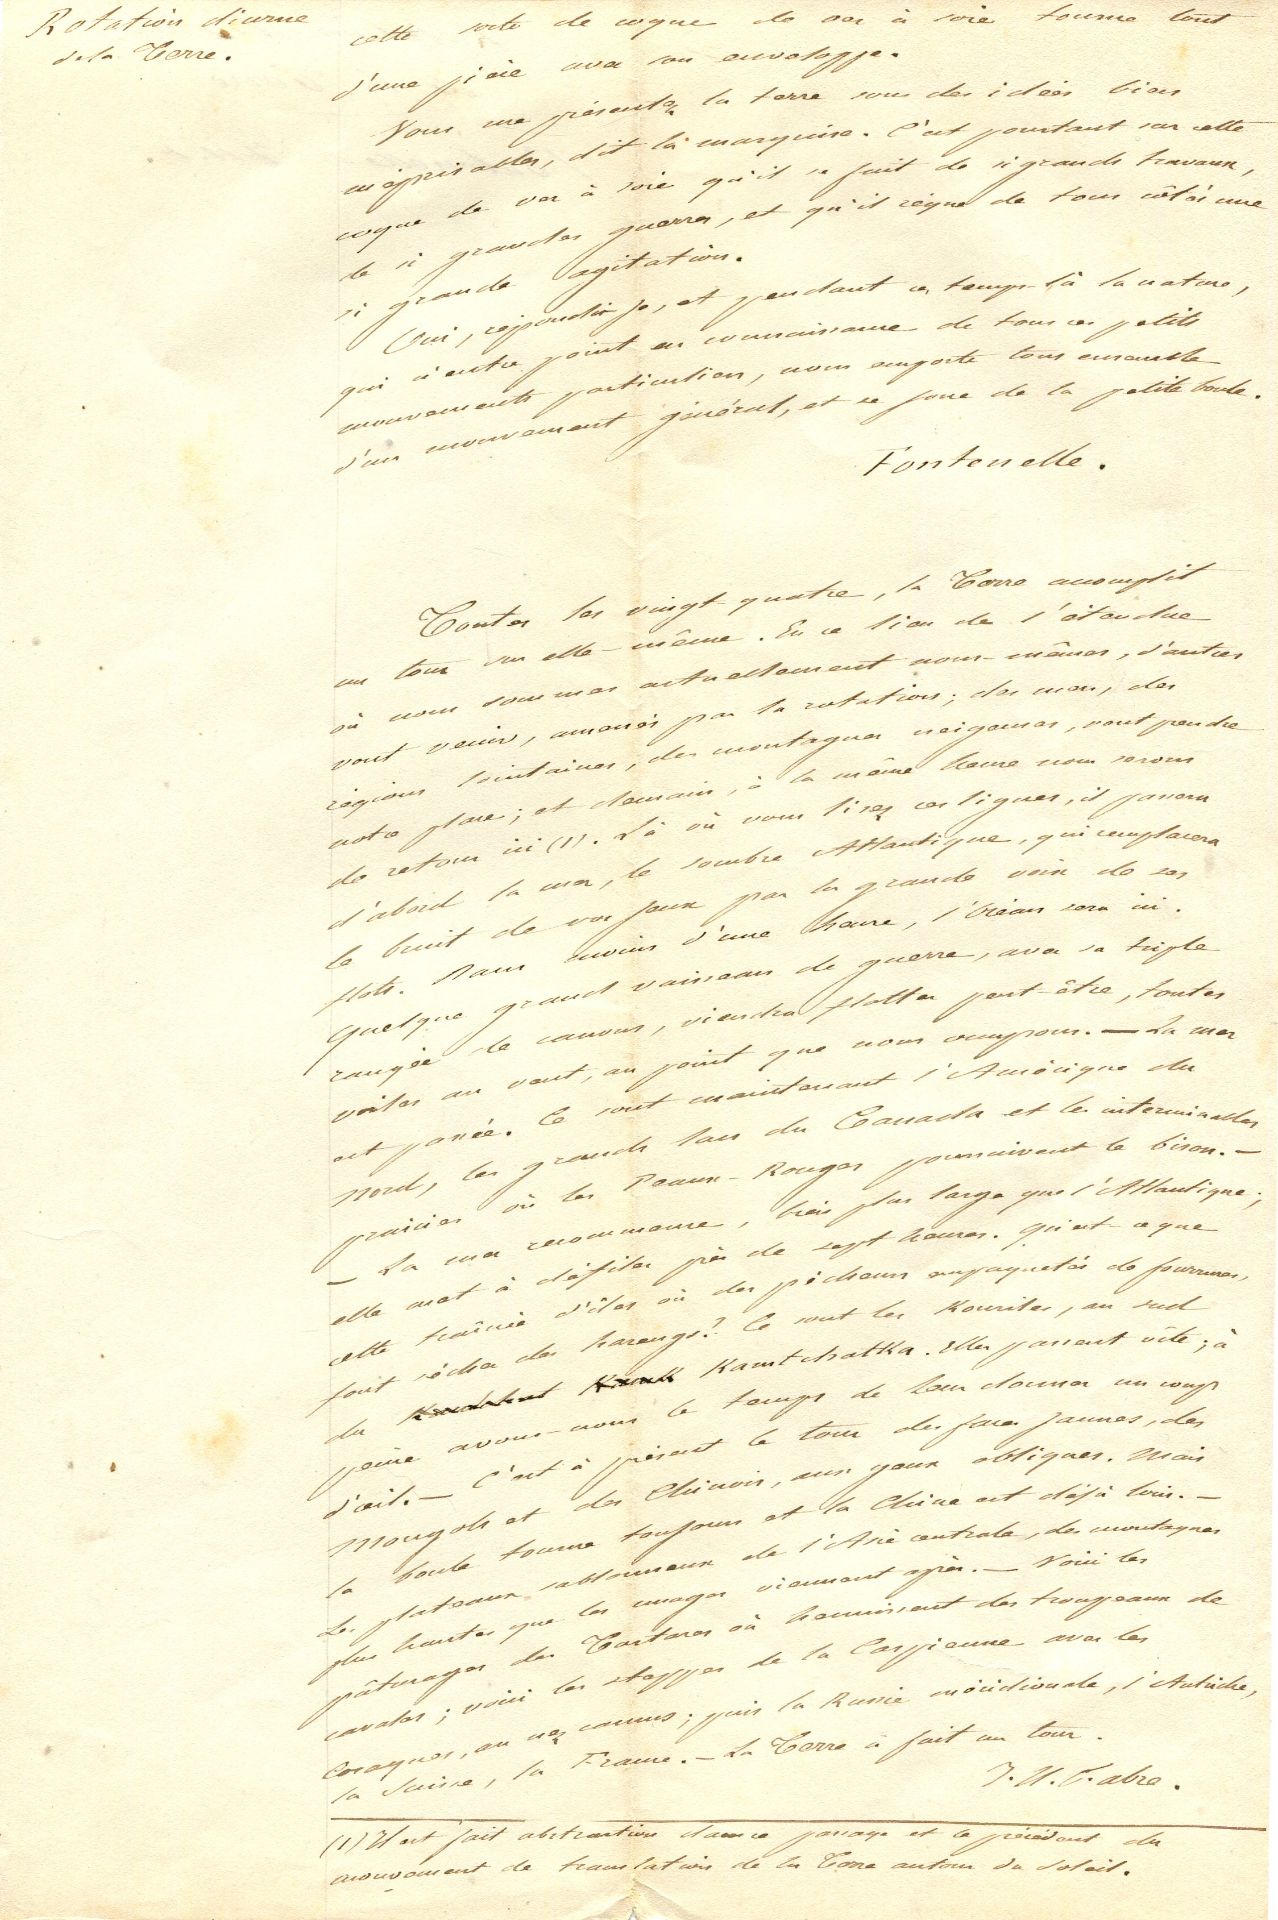 Rotation diurne
de la Terre.
cette sorte de coque de ver à soie tourne tout
d'une pièce avec son enveloppe.
Vous me présentez la terre sous des idées bien
méprisables, dit la marquise. C'est pourtant sur cette
coque de ver à soie qu'il se fait de si grands travaux,
de si grandes guerres, et qu'il règne de tous côtés une
si grande agitation.
Oui, répondis-je, et pendant ce temps-là la nature,
qui n'entre point en connaissance de tous ces petits
mouvements particuliers, nous emporte tous ensemble
d'un mouvement général, et se joue de la petite boule.
Fontenelle.
Toutes les vingt-quatre, la Terre accomplit
un tour sur elle-même. En ce lieu de l'étendue
où nous sommes actuellement nous-mêmes, d'autres
vont venir, amenés par la rotation; des mers, des
régions lointaines, des montagnes neigeuses, vont prendre
notre place; et demain, à la même heure nous serons
de retour ici (1). Là où vous lisez ces lignes, il passera
d'abord la mer, le sombre Atlantique, qui remplacera
le bruit de vos jeux par la grande voix de ses
flots. Dans moins d'une heure, l'Océan sera ici.
Quelque grand vaisseau de guerre, avec sa triple
rangée de canons, viendra flotter peut-être, toutes
voiles au vent, au point que nous occupons. — La mer
est passée. Ce sont maintenant l'Amérique du
Nord, les grands lacs du Canada et les interminables
prairies où les Peaux-Rouges poursuivent le bison. —
— La mer recommence, bien plus large que l'Atlantique;
elle met à défiler près de sept heures. Qu'est-ce que
cette traînée d'îles où des pêcheurs empaquetés de fourrures,
font sécher des harengs? Ce sont les Kouriles, au sud
du Kamtchatka. Elles passent vite; à
peine avons-nous le temps de leur donner un coup
d'œil. — C'est à présent le tour des faces jaunes, des
Mongols et des Chinois, aux yeux obliques. Mais
la boule tourne toujours et la Chine est déjà loin. —
Les plateaux sablonneux de l'Asie centrale, des montagnes
plus hautes que les nuages viennent après. — Voici les
pâturages des Tartares où hennissent des troupeaux de
cavales; voici les steppes de la Caspienne avec les
Cosaques, au nez camus; puis la Russie méridionale, l'Autriche,
la Suisse, la France. — La Terre a fait un tour.
J. H. Fabre.
(1) Il est fait abstraction dans ce passage et le précédent du
mouvement de translation de la Terre autour du Soleil.